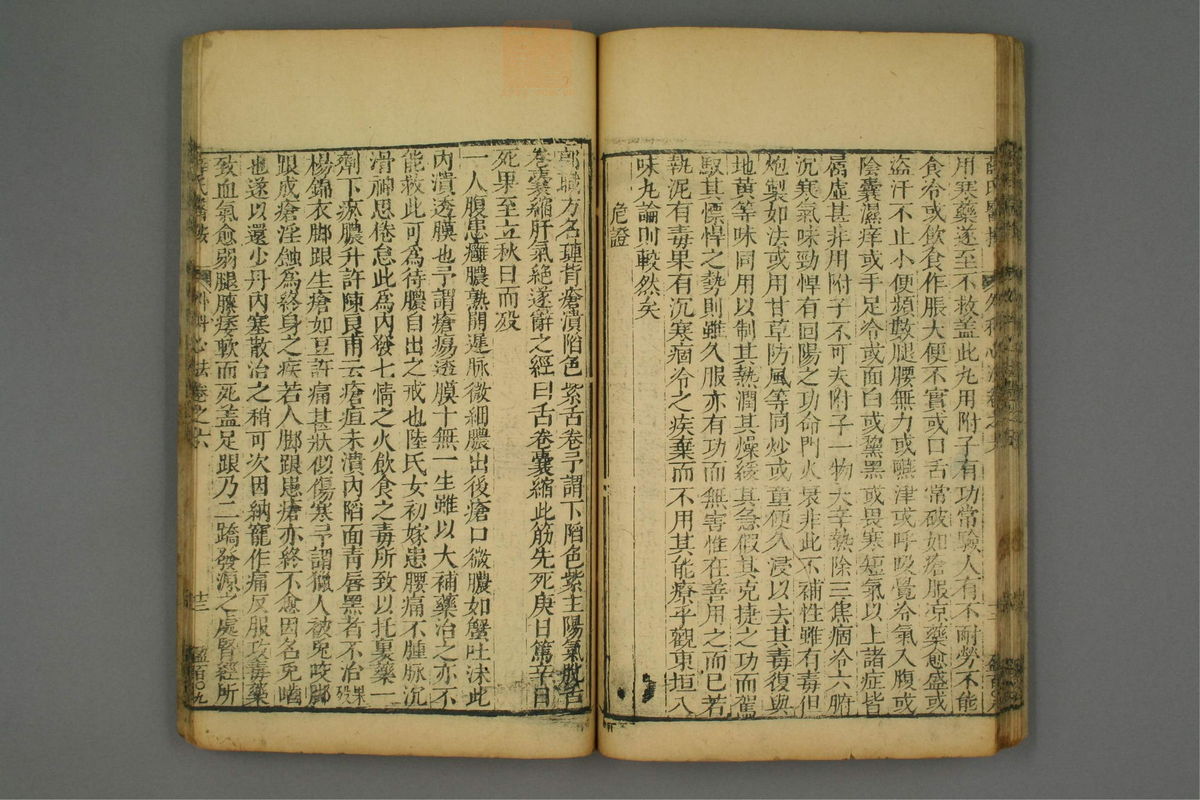 用寒藥遂至不救盖此九用附子有功常驗人有不耐勞不能
食冷或飲食作脹大便不實或口舌常破如瘡服凉藥愈盛或
盜汗不止小便頻數腿腰無力或嚥津或呼吸覺冷氣入腹或
陰囊濕痒或手足冷或面白或黧黑或畏寒短氣以上諸症皆
屬虛甚非用附子不可夫附子一物大辛熱除三焦痼冷六腑
沉寒氣味勁悍有回陽之功命門火衰非此不補性雖有毒但
炮製如法或用甘草防風等同炒或童便久浸以去其毒復與
地黄等味同用以制其熱潤其燥緩其急假其克捷之功而駕
馭其慓悍之勢則雖久服亦有功而無害惟在善用之而已若
執泥有毒果有沉寒痼冷之疾棄而不用其能療乎觀東垣八
味九論則較然矣
危證
郭職方名璉背瘡潰陷色紫舌卷予謂下陷色紫主陽氣脫舌
卷囊縮肝氣絶遂辭之經曰舌卷囊縮此筋先死庚日篤辛日
死果至立秋日而歿
一人腹患癰膿熟開遲脉微細膿出後瘡口微膿如蟹吐沫此
内潰透膜也予謂瘡瘍透膜十無一生雖以大補藥治之亦不
能救此可為待膿自出之戒也陸氏女初嫁患腰痛不腫脉沉
滑神思倦怠此為内發七情之火飲食之毒所致以托裏藥一
劑下瘀膿升許陳良甫云瘡疽未潰内陷面青唇黑者不治果歿
楊錦衣脚跟生瘡如豆許痛甚狀似傷寒予謂獵人被兎咬脚
跟成瘡淫蝕為終身之疾若人脚跟患瘡亦終不愈因名兎嚙
也遂以還少丹内塞散治之稍可次因納寵作痛反服攻毒藥
致血氣愈弱腿膝痿軟而死盖足跟乃二蹻發源之處腎經所
薛氏醫按 外科心法卷之六 十三 盈百〇九